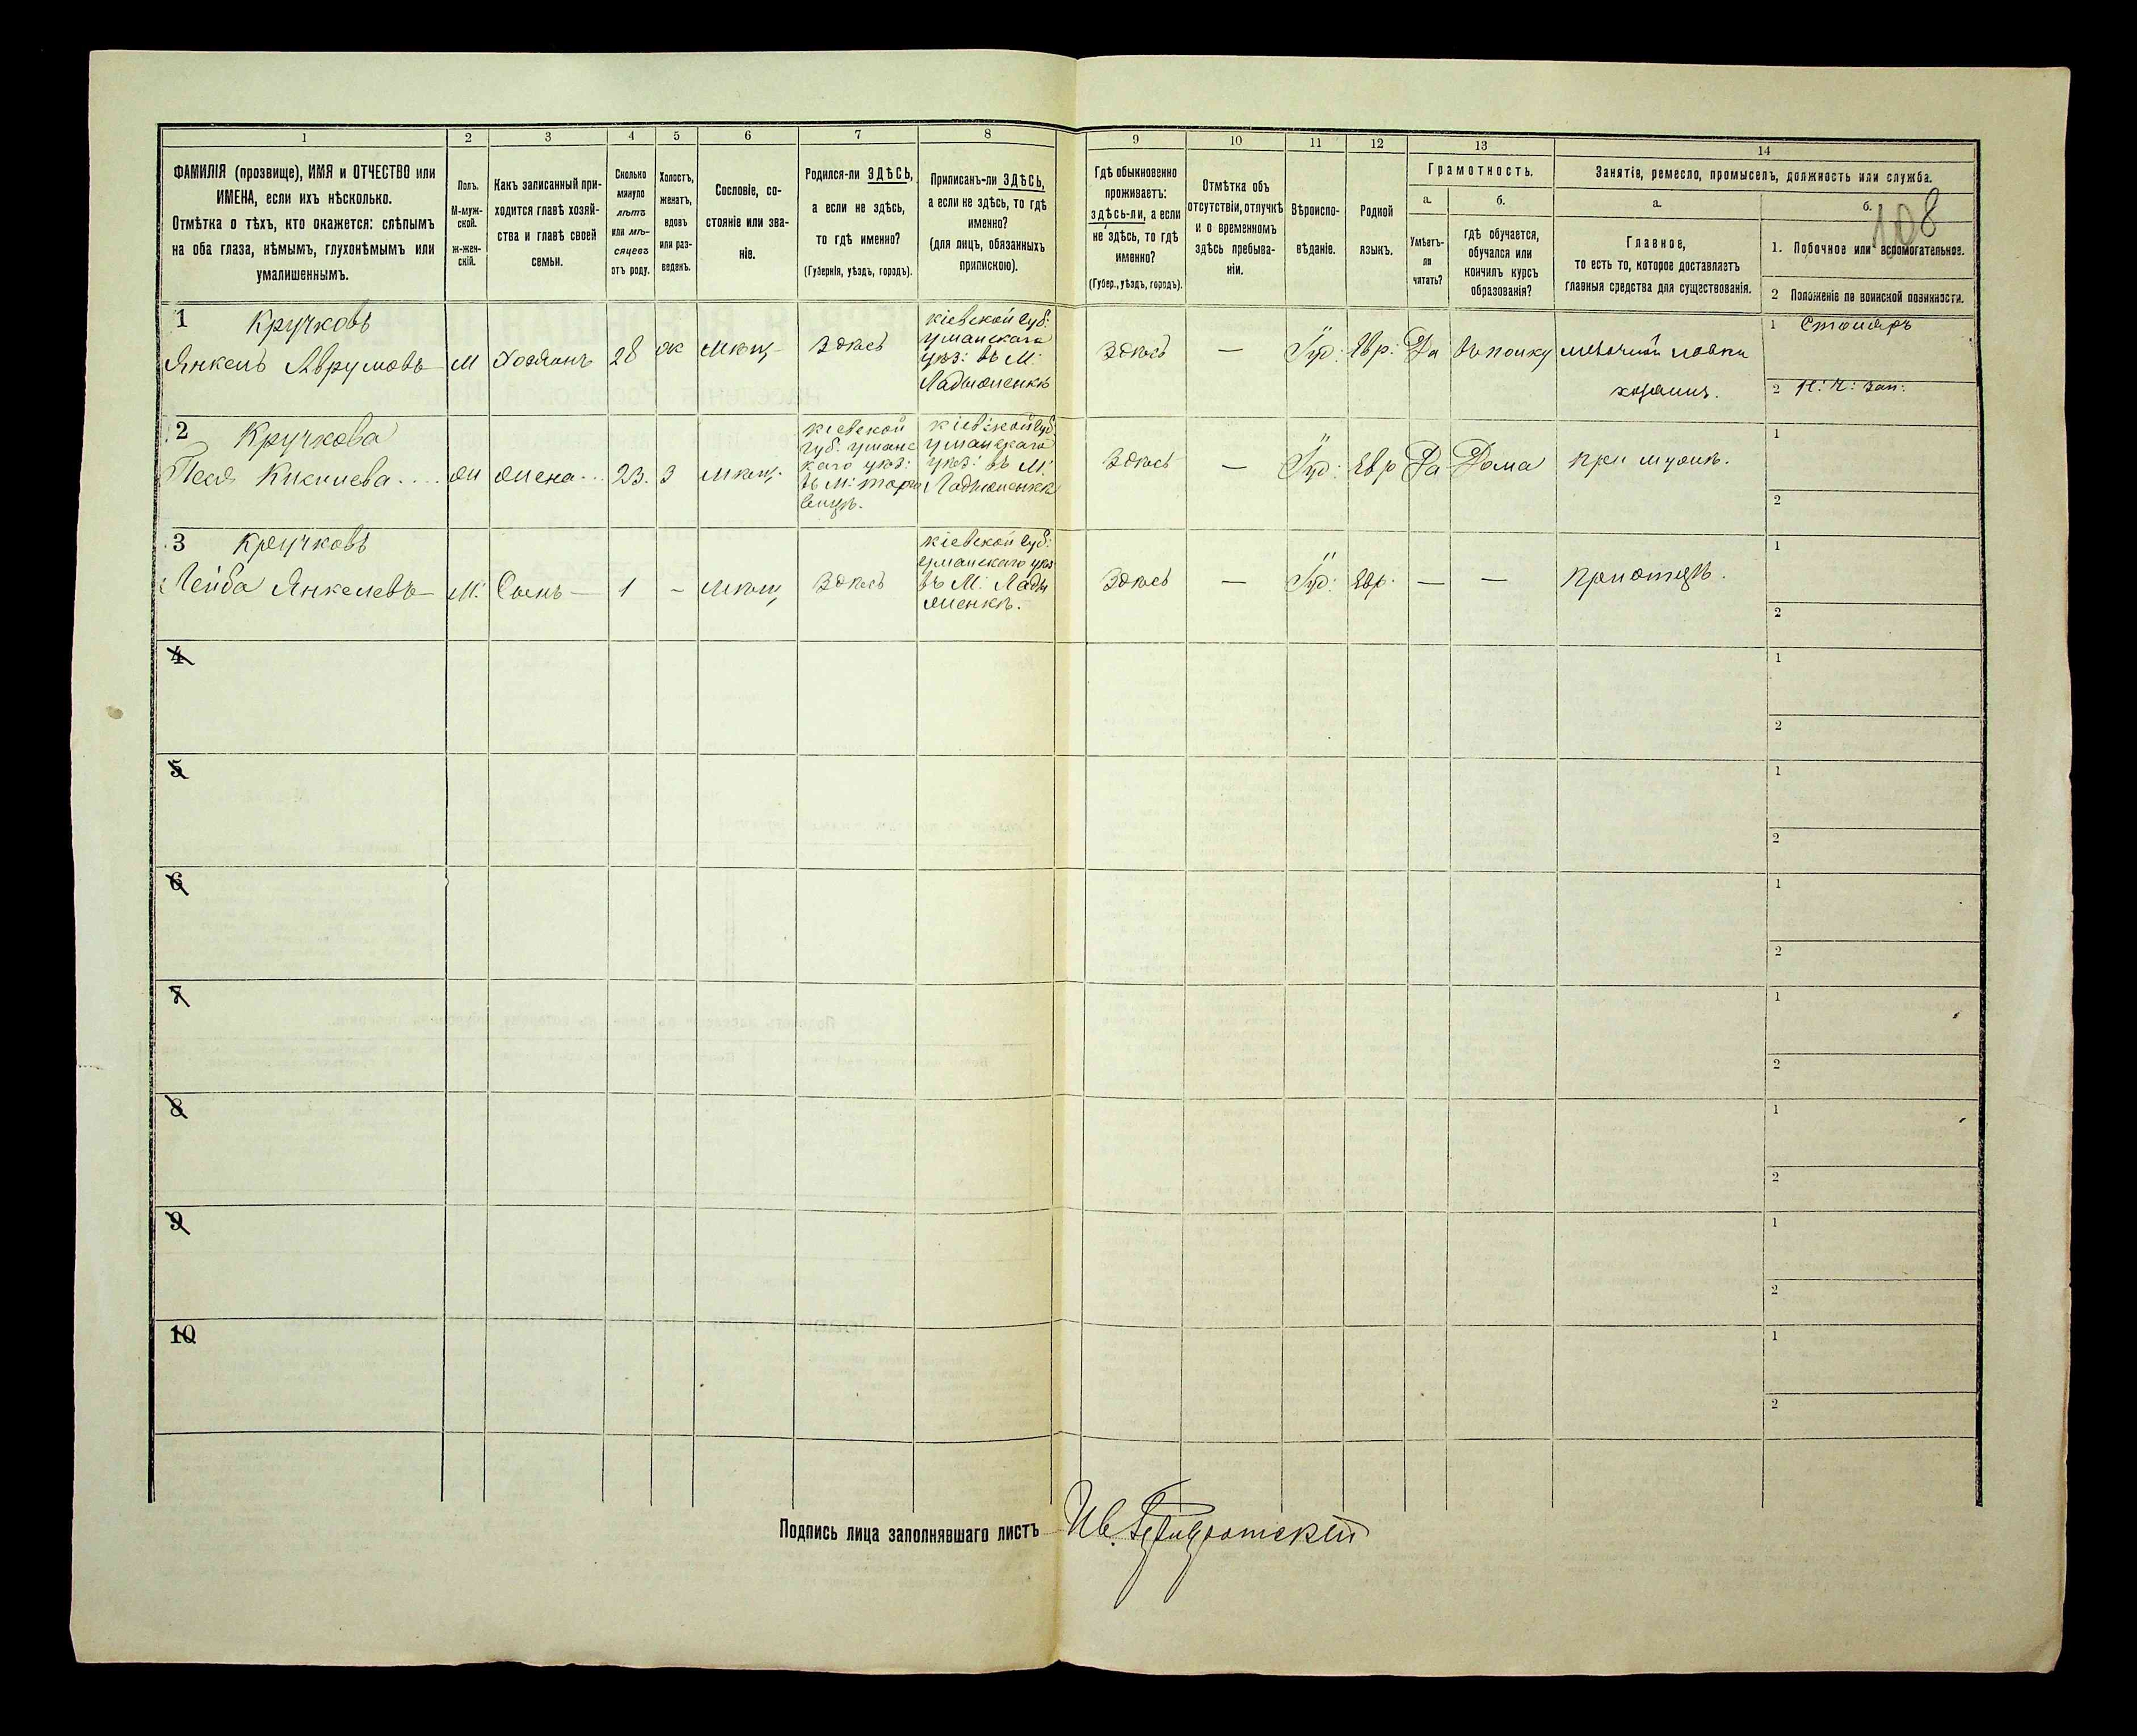 1 2 3 4 5 6 7 8 9 10 11 12 13 14
ФАМИЛІЯ (прозвище), ИМЯ и ОТЧЕСТВО или
ИМЕНА, если ихъ нѣсколько.
Отмѣтка о тѣхъ, кто окажется: слѣпымъ
на оба глаза, нѣмымъ, глухонѣмымъ или
умалишеннымъ.
Полъ.
М-муж-
ской.
Ж-жен-
скій.
Какъ записанный при-
ходится главѣ хозяй-
ства и главѣ своей
семьи.
Сколько
минуло
лѣтъ
или мѣ-
сяцевъ
отъ роду.
Холостъ,
женатъ,
вдовъ
или раз-
веденъ.
Сословіе, со-
стояніе или зва-
ніе.
Родился-ли ЗДѢСЬ,
а если не здѣсь,
то гдѣ именно?
(Губернія, уѣздъ, городъ).
Приписанъ-ли ЗДѢСЬ,
а если не здѣсь, то гдѣ
именно?
(для лицъ, обязанныхъ
припискою).
Гдѣ обыкновенно
проживаетъ:
здѣсь-ли, а если
не здѣсь, то гдѣ
именно?
(Губер., уѣздъ, городъ).
Отмѣтка объ
отсутствіи, отлучкѣ
и о временномъ
здѣсь пребыва-
ніи.
Вѣроиспо-
вѣданіе.
Родной
языкъ.
Грамотность.
а.
Умѣетъ-
ли
читать?
б.
гдѣ обучается,
обучался или
кончилъ курсъ
образованія?
Занятіе, ремесло, промыселъ, должность или служба.
а.
Главное,
то есть то, которое доставляетъ
главныя средства для существованія.
б.
108
1. Побочное или вспомогательное.
2 Положеніе по воинской повинности.
1 Кручковъ
Янкель Аврумовъ
М
Хозяинъ
28
ж
мѣщ
Здѣсь
Кіевской Губ:
Уманскаго
уѣз: въ М:
Ладыженкѣ
Здѣсь
—
Іуд:
Евр:
Да
мелочной лавки
хозяинъ.
1 Столяръ
2
2 Кручкова
Песя
жена
23.
З
мѣщ.
Кіевской
Губ. Уманс
каго уѣз:
въ М: Торго
вицѣ.
Кіевской Губ
Уманскаго
уѣз: въ М:
Ладыженкѣ
Здѣсь
—
Іуд:
Евр
Да
Дома
при мужѣ.
1
2
3 Кручковъ
Лейба Янкелевъ
М.
Сынъ
1
–
мѣщ
Здѣсь
Кіевской Губ:
Уманскаго уѣз
въ М. Лады
женкѣ.
Здѣсь
—
Іуд:
Евр.
—
—
при отцѣ.
1
2
4
1
2
5
1
2
6
1
2
7
1
2
8
1
2
9
1
2
10
1
2
Подпись лица заполнявшаго листъ